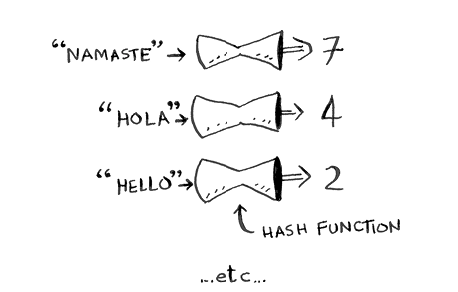 “NAMASTE” → 7
“HOLA” → 4
“HELLO” → 2
HASH FUNCTION
...etc...